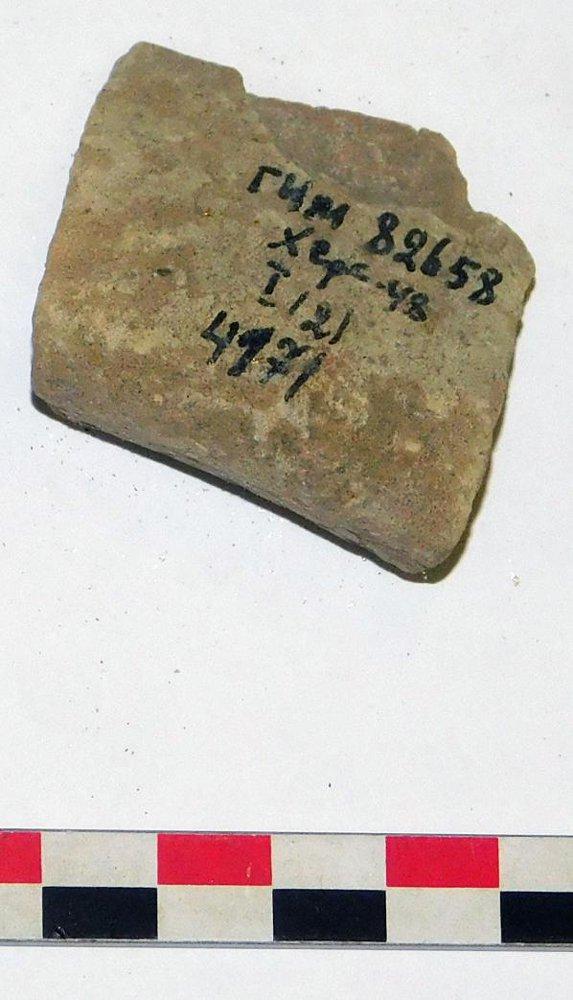 ГИМ 82658
Херс-48
I (2)